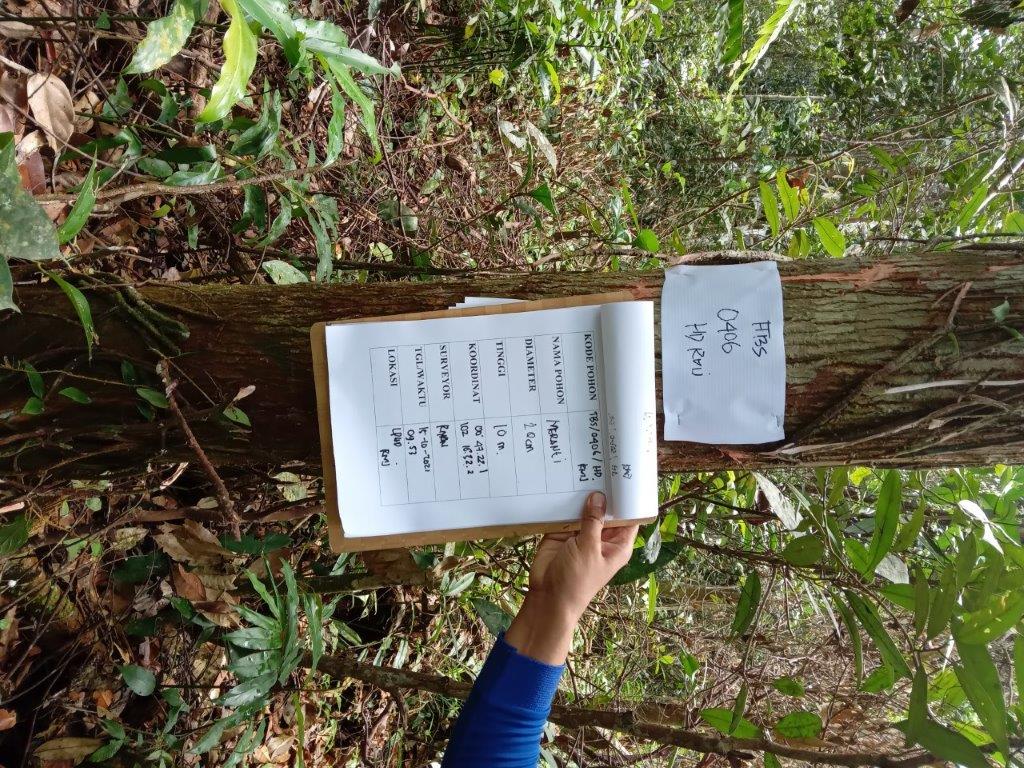 HTBS
0406
HD RMJ
KODE POHON TBS/0406/HD. RMJ
NAMA POHON MERANTI
DIAMETER 20cm
TINGGI 10 m.
KOORDINAT 00 47.22.1
102 16 52.2
SURVEYOR
TGL/WAKTU 15-10-2021
09.53
LOKASI RMJ